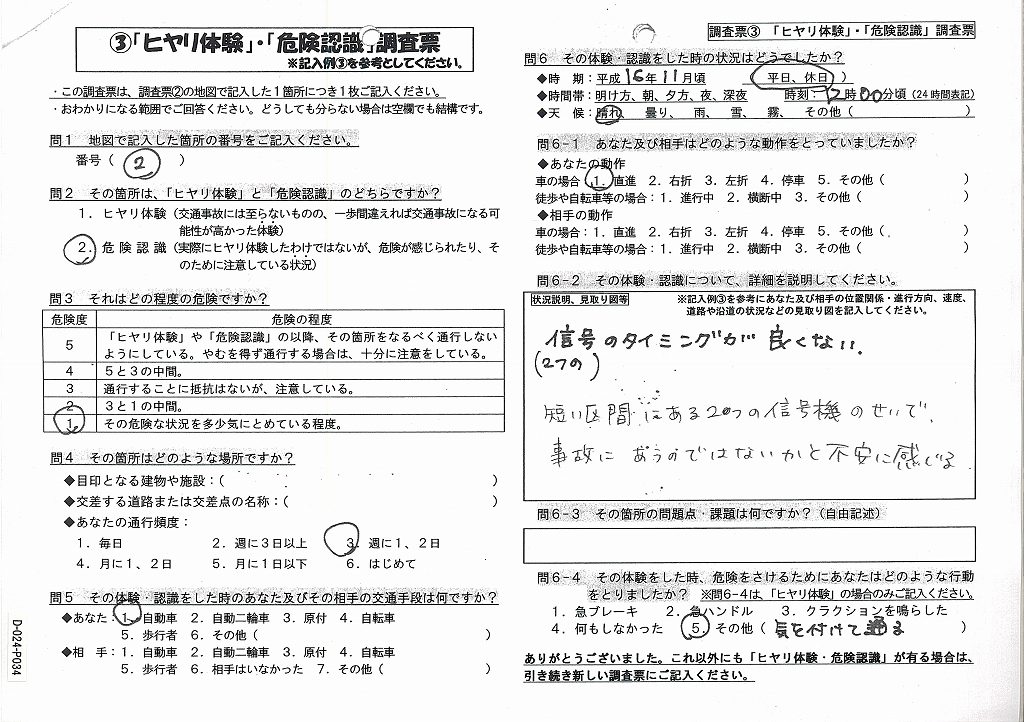 ③「ヒヤリ体験」・「危険認識」調査票
※記入例③を参考としてください。
・この調査票は、調査票②の地図で記入した１箇所につき１枚ご記入ください。
・おわかりになる範囲でご回答ください。どうしても分らない場合は空欄でも結構です。
問１　地図で記入した箇所の番号をご記入ください。
番号（　2　）
問２　その箇所は、「ヒヤリ体験」と「危険認識」のどちらですか？
１．ヒヤリ体験（交通事故には至らないものの、一歩間違えれば交通事故になる可
能性が高かった体験）
２．危険認識（実際にヒヤリ体験したわけではないが、危険が感じられたり、そ
のために注意している状況）
問３　それはどの程度の危険ですか？
危険度　危険の程度
５　「ヒヤリ体験」や「危険認識」の以降、その箇所をなるべく通行しない
ようにしている。やむを得ず通行する場合は、十分に注意をしている。
４　５と３の中間。
３　通行することに抵抗はないが、注意している。
２　３と１の中間。
１　その危険な状況を多少気にとめている程度。
問４　その箇所はどのような場所ですか？
◆目印となる建物や施設：（　）
◆交差する道路または交差点の名称：（　）
◆あなたの通行頻度：
１．毎日　２．週に３日以上　３．週に１、２日
４．月に１、２日　５．月に１日以下　６．はじめて
問５　その体験・認識をした時のあなた及びその相手の交通手段は何ですか？
◆あなた：１．自動車　２．自動二輪車　３．原付　４．自転車
５．歩行者　６．その他（　）
◆相　手：１．自動車　２．自動二輪車　３．原付　４．自転車
５．歩行者　６．相手はいなかった　７．その他（　）
D-024-P034
調査票③　「ヒヤリ体験」・「危険認識」調査票
問６　その体験・認識をした時の状況はどうでしたか？
◆時　期：平成16年11月頃　平日、休日　）
◆時間帯：明け方、朝、夕方、夜、深夜　時刻：12時00分頃（24時間表記）
◆天　候：晴れ　曇り、　雨、　雪、　霧、　その他（　）
問６-１　あなた及び相手はどのような動作をとっていましたか？
◆あなたの動作
車の場合：１．直進　２．右折　３．左折　４．停車　５．その他（　）
徒歩や自転車等の場合：１．進行中　２．横断中　３．その他（　）
◆相手の動作
車の場合：１．直進　２．右折　３．左折　４．停車　５．その他（　）
徒歩や自転車等の場合：１．進行中　２．横断中　３．その他（　）
問６-２　その体験・認識について、詳細を説明してください。
状況説明、見取り図等　※記入例③を参考にあなた及び相手の位置関係・進行方向、速度、
道路や沿道の状況などの見取り図を記入してください。
信号のタイミングが良くない.
(2つの)
短い区間にある2つの信号機のせいで、
事故にあうのではないかと不安に感じる
問６-３　その箇所の問題点・課題は何ですか？（自由記述）
問６-４　その体験をした時、危険をさけるためにあなたはどのような行動
をとりましたか？　※問６-４は、「ヒヤリ体験」の場合のみご記入ください。
１．急ブレーキ　２．急ハンドル　３．クラクションを鳴らした
４．何もしなかった　５．その他（気を付けて通る　）
ありがとうございました。これ以外にも「ヒヤリ体験・危険認識」が有る場合は、
引き続き新しい調査票にご記入ください。